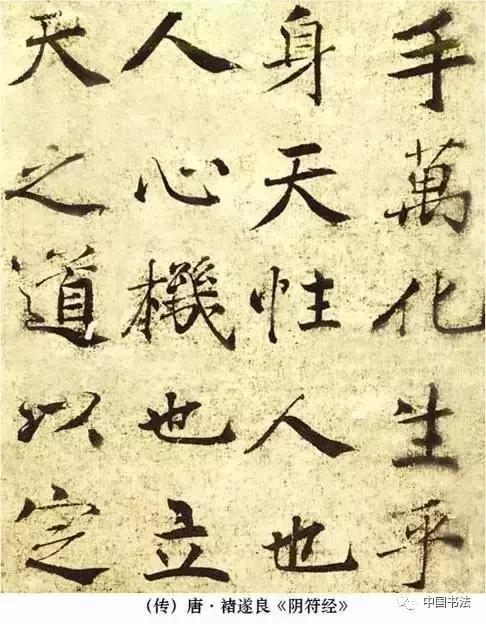 手萬化生乎
身天性人也
人心機也立
天之道以定
（传）唐·褚遂良《阴符经》
中国书法